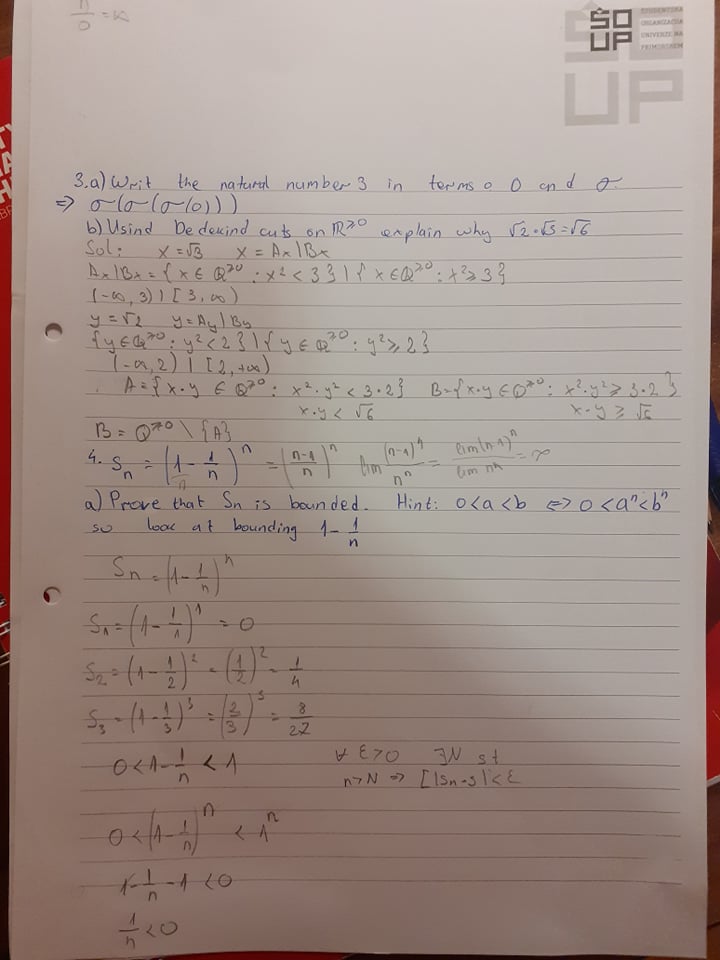 n/0 = ∞
ŠO
UP
ŠTUDENTSKA
ORGANIZACIJA
UNIVERZE NA
PRIMORSKEM
ŠO
UP
3.a) Writ the natural number 3 in terms o 0 and σ.
=> σ(σ(σ(0)))
b) Usind Dedekind cuts on ℝ≥0 explain why √2·√3=√6
Sol: x=√3 x = Ax|Bx
Ax|Bx = {x ∈ ℚ≥0 : x² < 3} | {x ∈ ℚ≥0 : x² ≥ 3}
(-∞, 3) | [3, ∞)
y = √2 y = Ay|By
{y ∈ ℚ≥0 : y² < 2} | {y ∈ ℚ≥0 : y² ≥ 2}
(-∞, 2) | [2, +∞)
A = {x·y ∈ ℚ≥0 : x²·y² < 3·2} B = {x·y ∈ ℚ≥0 : x²·y² ≥ 3·2}
x·y < √6 x·y ≥ √6
B = ℚ≥0 \ {A}
4. Sn = (1 - 1/n)^n = ((n-1)/n)^n lim (n-1)^n/n^n = lim(n-1)^n/lim n^n = ∞
a) Prove that Sn is bounded. Hint: 0<a<b <=> 0<a^n<b^n
so look at bounding 1 - 1/n
Sn = (1 - 1/n)^n
S1 = (1 - 1/1)^1 = 0
S2 = (1 - 1/2)^2 = (1/2)^2 = 1/4
S3 = (1 - 1/3)^3 = (2/3)^3 = 8/27
0 < 1 - 1/n < 1 ∀ ε>0 ∃N st
n>N => [|Sn-s|<ε
0 < (1 - 1/n)^n < 1^n
1 - 1/n - 1 < 0
1/n < 0